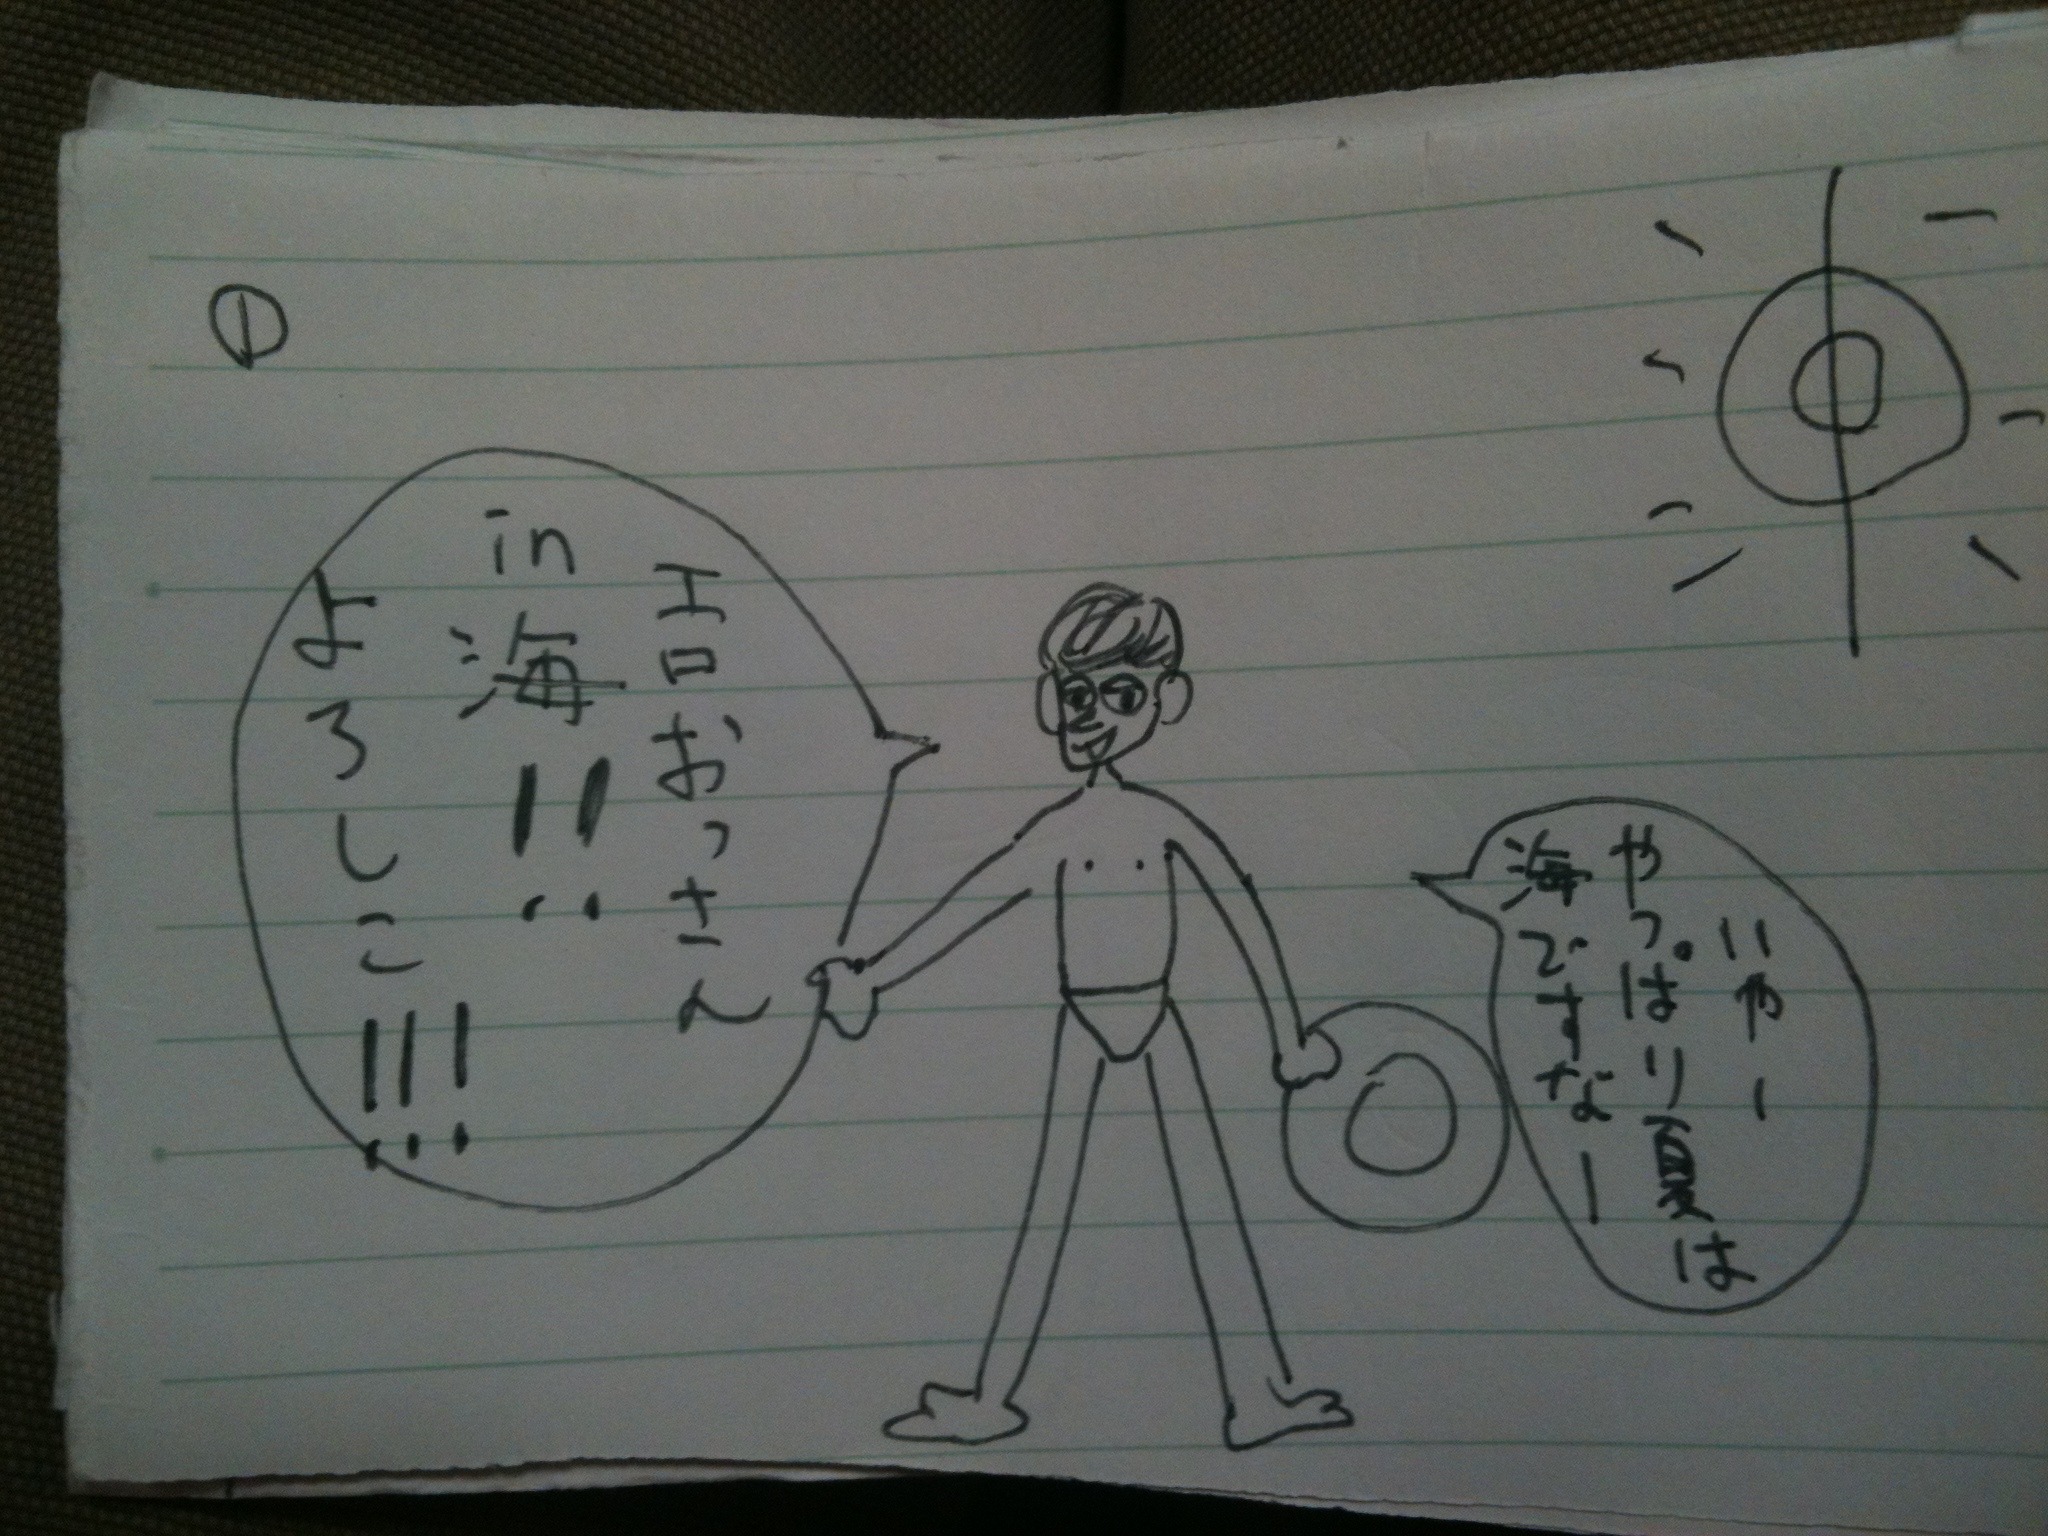 ①
エロおっさん
in海!!
よろしこ!!!
いやー
やっぱり夏は
海ですなー